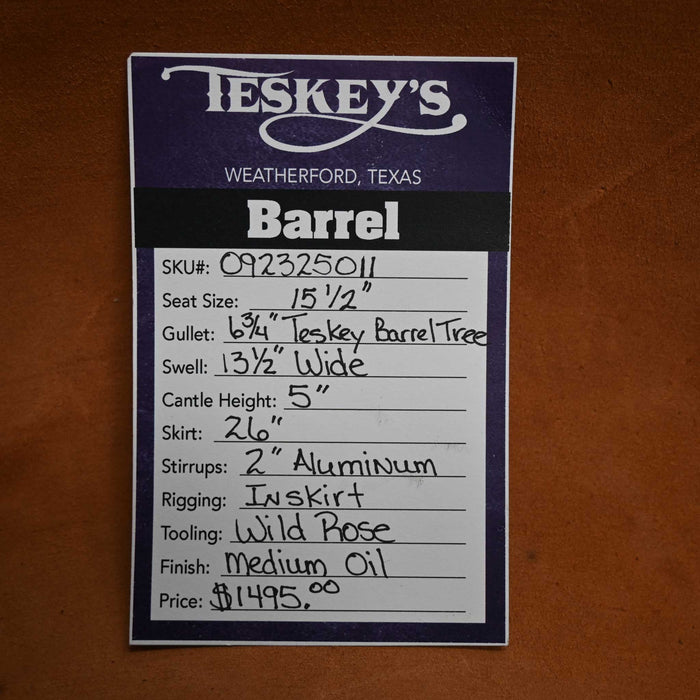 TESKEY'S
WEATHERFORD, TEXAS
Barrel
SKU#: 092325011
Seat Size: 15 1/2"
Gullet: 6 3/4" Teskey Barrel Tree
Swell: 13 1/2" Wide
Cantle Height: 5"
Skirt: 26"
Stirrups: 2" Aluminum
Rigging: Inskirt
Tooling: Wild Rose
Finish: Medium Oil
Price: $1495.00